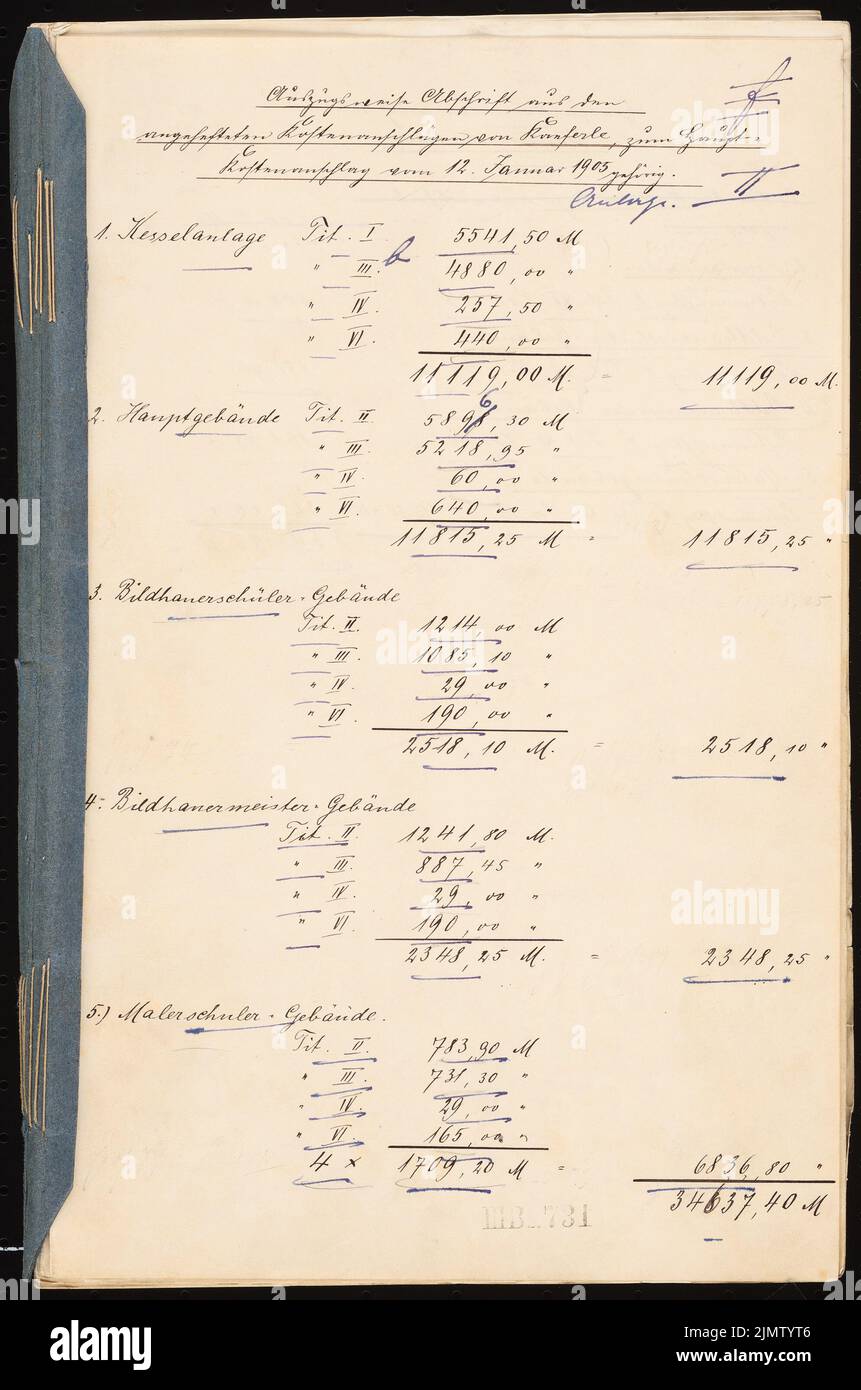 Auszugsweise Abschrift aus den
angehefteten Kostenanschlägen von Kaeferle, zum Haupt-
Kostenanschlag vom 12. Januar 1905 gehörig.
Anlage. II
1. Kesselanlage Tit. I 5541,50 M
" III. b 4880,00 "
" IV. 257,50 "
" VI. 440,00 "
11119,00 M. = 11119,00 M.
2. Hauptgebäude Tit. II 5896,30 M
" III. 5218,95 "
" IV 60,00 "
" VI. 640,00 "
11815,25 M = 11815,25 "
3. Bildhauerschüler-Gebäude
Tit. II. 1214,00 M
" III. 1085,10 "
" IV. 29,00 "
" VI. 190,00 "
2518,10 M. = 2518,10 "
4. Bildhauermeister-Gebäude
Tit. II. 1241,80 M.
" III. 887,45 "
" IV. 29,00 "
" VI 190,00 "
2348,25 M. = 2348,25 "
5.) Malerschüler-Gebäude.
Tit. II. 783,90 M
" III. 731,30 "
" IV. 29,00 "
" VI. 165,00 "
4 x 1709,20 M = 6836,80 "
34637,40 M
alamy
Image ID: 2JMTYT6
www.alamy.com